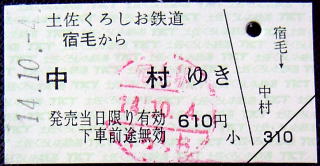 土佐くろしお鉄道
宿毛から
中村ゆき
発売当日限り有効 610円
下車前途無効
小 310
宿毛→中村
14.10.-4
14.10.-4